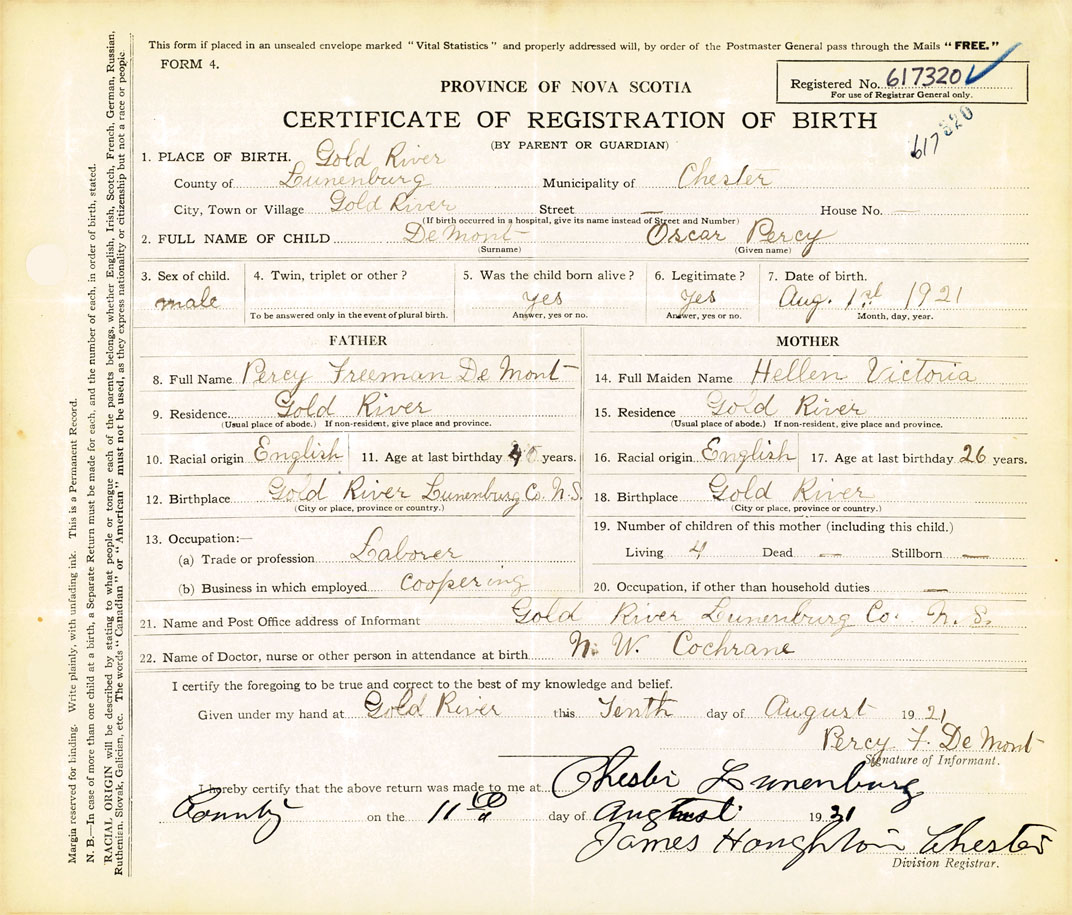 This form if placed in an unsealed envelope marked "Vital Statistics" and properly addressed will, by order of the Postmaster General pass through the Mails "FREE."
FORM 4.
Registered No. 617320
For use of Registrar General only.
PROVINCE OF NOVA SCOTIA
CERTIFICATE OF REGISTRATION OF BIRTH
617 320
(BY PARENT OR GUARDIAN)
1. PLACE OF BIRTH. Gold River
County of Lunenburg Municipality of Chester
City, Town or Village Gold River Street — House No. —
(If birth occurred in a hospital, give its name instead of Street and Number)
2. FULL NAME OF CHILD DeMont Oscar Percy
(Surname) (Given name)
3. Sex of child. 4. Twin, triplet or other? 5. Was the child born alive? 6. Legitimate? 7. Date of birth.
male yes yes Aug. 1st 1921
To be answered only in the event of plural birth. Answer, yes or no. Answer, yes or no. Month, day, year.
FATHER
8. Full Name Percy Freeman De Mont
9. Residence Gold River
(Usual place of abode.) If non-resident, give place and province.
10. Racial origin English 11. Age at last birthday 40 years.
12. Birthplace Gold River Lunenburg Co. N.S.
(City or place, province or country.)
13. Occupation:—
(a) Trade or profession Laborer
(b) Business in which employed Coopering
MOTHER
14. Full Maiden Name Hellen Victoria
15. Residence Gold River
(Usual place of abode.) If non-resident, give place and province.
16. Racial origin English 17. Age at last birthday 26 years.
18. Birthplace Gold River
(City or place, province or country.)
19. Number of children of this mother (including this child.)
Living 4 Dead — Stillborn —
20. Occupation, if other than household duties —
21. Name and Post Office address of Informant Gold River Lunenburg Co. N. S.
22. Name of Doctor, nurse or other person in attendance at birth N. W. Cochrane
I certify the foregoing to be true and correct to the best of my knowledge and belief.
Given under my hand at Gold River this Tenth day of August 1921
Percy F. De Mont
Signature of Informant.
I hereby certify that the above return was made to me at Chester Lunenburg
County on the 11 day of August 1921
James Houghton Chester
Division Registrar.
Margin reserved for binding. Write plainly, with unfading ink. This is a Permanent Record.
N. B.—In case of more than one child at a birth, a Separate Return must be made for each, and the number of each, in order of birth, stated.
RACIAL ORIGIN will be described by stating to what people or tongue each of the parents belongs, whether English, Irish, Scotch, French, German, Russian,
Ruthenian, Slovak, Galician, etc. The words "Canadian" or "American" must not be used, as they express nationality or citizenship but not a race or people